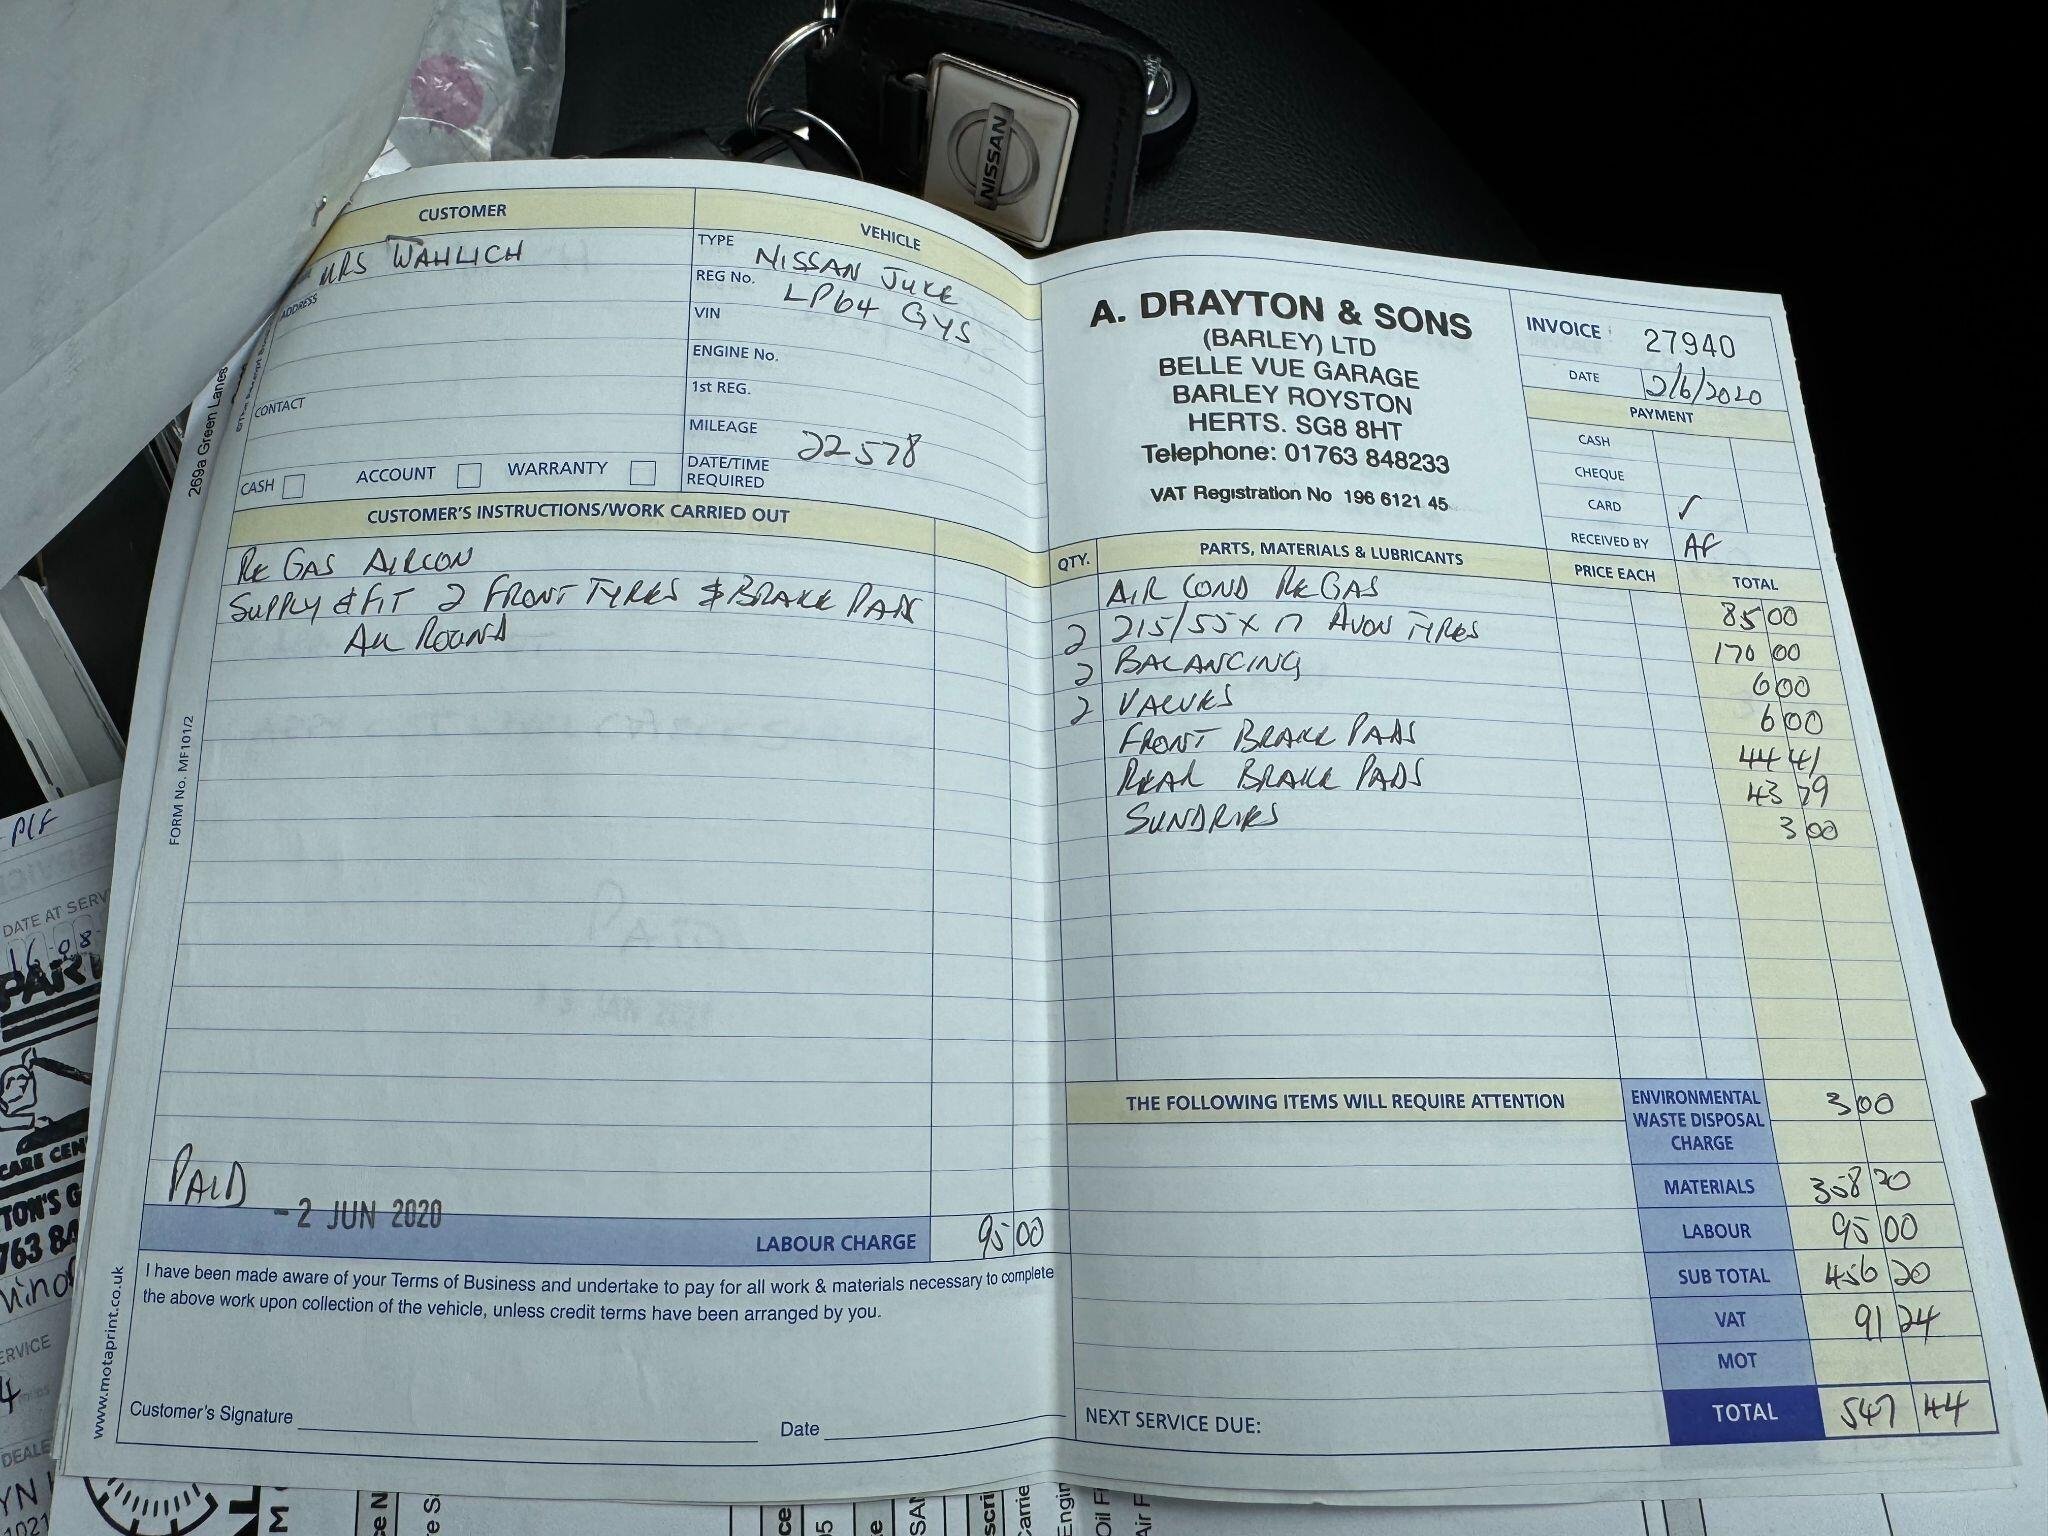 NISSAN
CUSTOMER
MRS WAHLICH
ADDRESS
CONTACT
CASH ACCOUNT WARRANTY
VEHICLE
TYPE NISSAN JUKE
REG No. LP64 GYS
VIN
ENGINE No.
1st REG.
MILEAGE 22578
DATE/TIME
REQUIRED
A. DRAYTON & SONS
(BARLEY) LTD
BELLE VUE GARAGE
BARLEY ROYSTON
HERTS. SG8 8HT
Telephone: 01763 848233
VAT Registration No 196 6121 45
INVOICE 27940
DATE 2/6/2020
PAYMENT
CASH
CHEQUE
CARD ✓
RECEIVED BY AF
CUSTOMER'S INSTRUCTIONS/WORK CARRIED OUT
RE GAS AIRCON
SUPPLY & FIT 2 FRONT TYRES & BRAKE PADS
ALL ROUND
PAID
- 2 JUN 2020
LABOUR CHARGE 95 00
I have been made aware of your Terms of Business and undertake to pay for all work & materials necessary to complete
the above work upon collection of the vehicle, unless credit terms have been arranged by you.
Customer's Signature
Date
QTY. PARTS, MATERIALS & LUBRICANTS PRICE EACH TOTAL
AIR COND RE GAS 85 00
2 215/55 x 17 AVON TYRES 170 00
2 BALANCING 6 00
2 VALVES 6 00
FRONT BRAKE PADS 44 41
REAR BRAKE PADS 43 79
SUNDRIES 3 00
THE FOLLOWING ITEMS WILL REQUIRE ATTENTION
ENVIRONMENTAL
WASTE DISPOSAL
CHARGE 3 00
MATERIALS 358 20
LABOUR 95 00
SUB TOTAL 456 20
VAT 91 24
MOT
TOTAL 547 44
NEXT SERVICE DUE:
FORM No. MF101/2
www.motaprint.co.uk
269a Green Lanes
DATE AT SERV
16 08
CARE CEN
TON'S G
763 84
ERVICE
4
DEALE
YN
1021